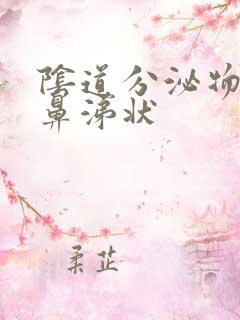 陰道分泌物
鼻涕状
柔芷